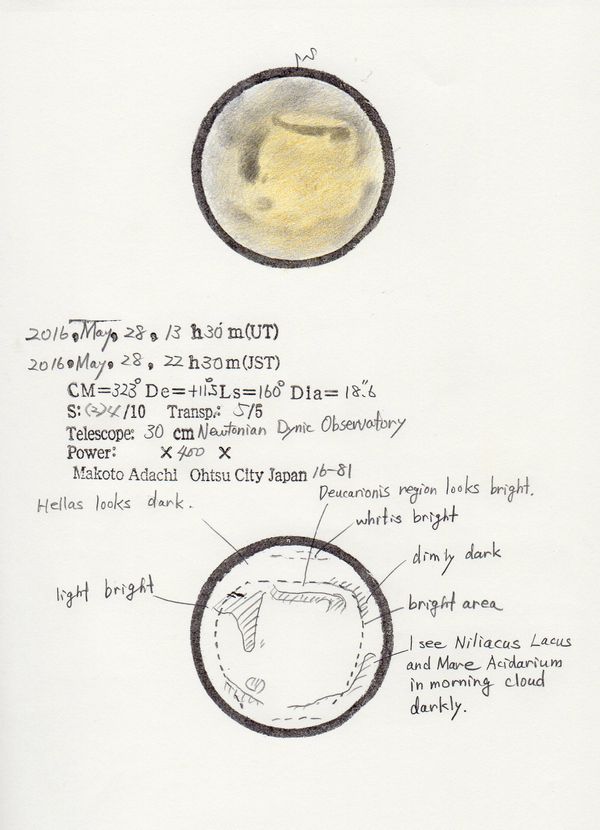 2016, May, 28, 13 h 30 m(UT)
2016, May, 28, 22 h 30 m(JST)
CM=323° De=+11.5° Ls=160° Dia= 18".6
/10 Transp.: 5/5
Telescope: 30 cm Newtonian Dynic Observatory
Power: × 400 ×
Makoto Adachi Ohtsu City Japan 16-81
Deucarionis region looks bright.
Hellas looks dark.
whitis bright
dimly dark
light bright
bright area
I see Niliacus Lacus
and Mare Acidarium
in morning cloud
darkly.